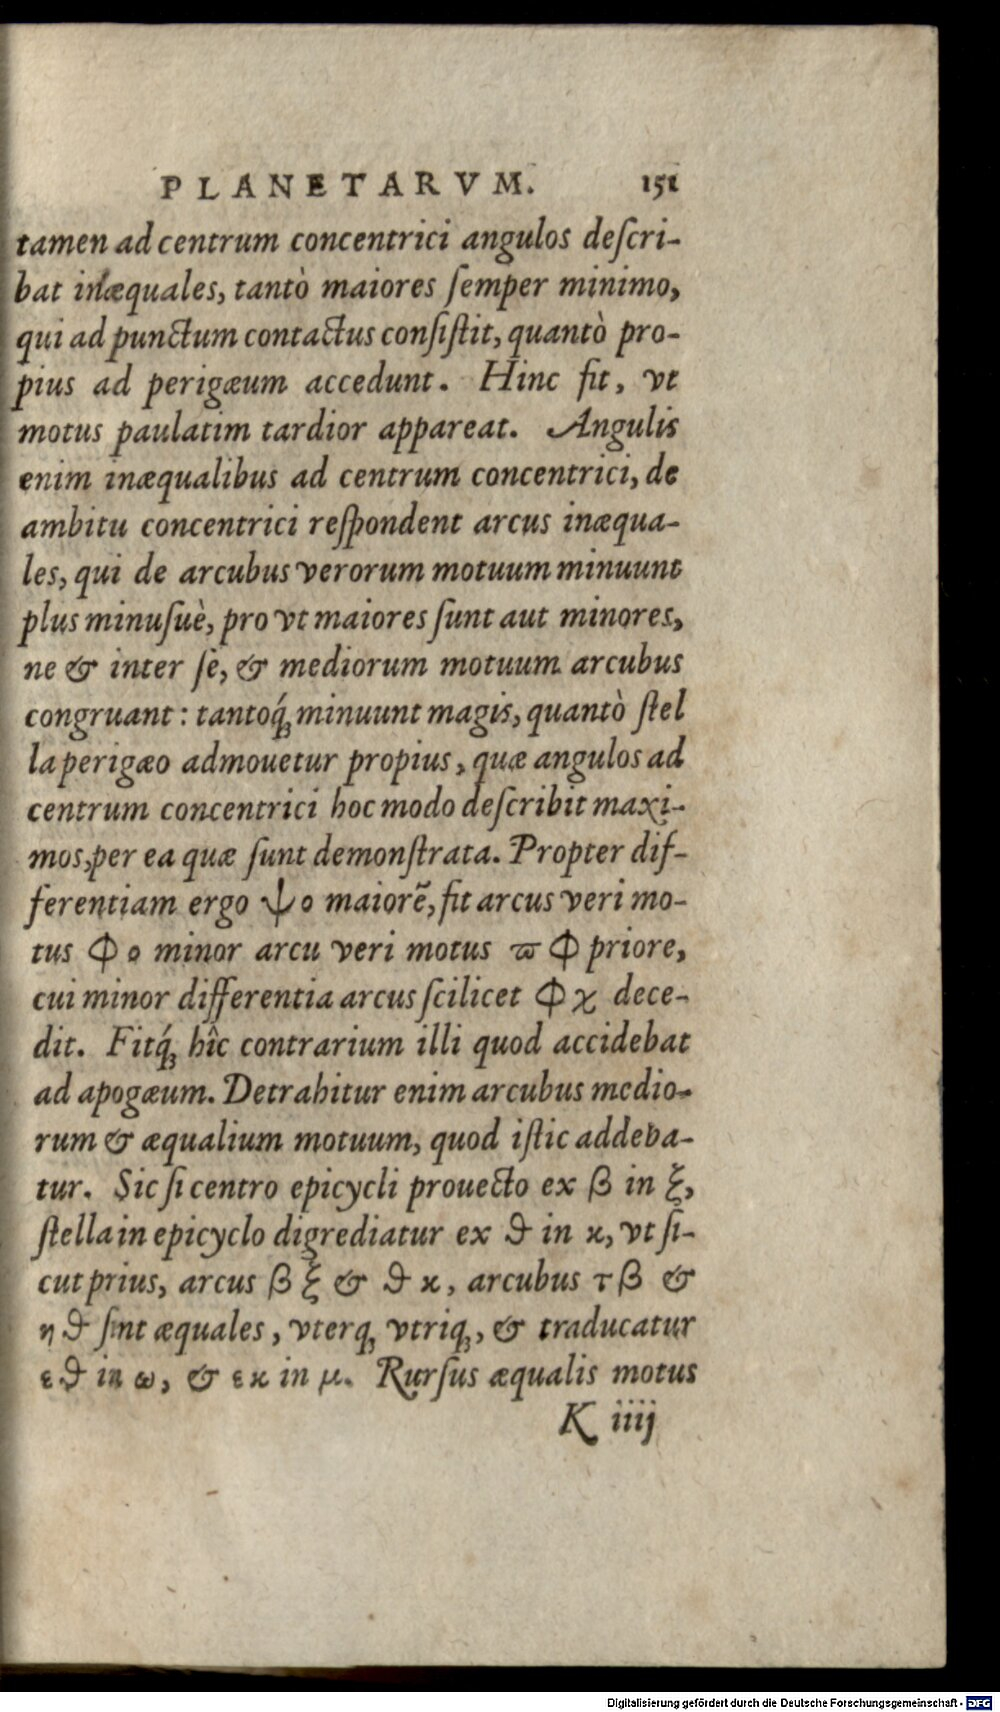 PLANETARVM. 151
tamen ad centrum concentrici angulos deſcri-
bat inæquales, tantò maiores ſemper minimo,
qui ad punctum contactus conſiſtit, quantò pro-
pius ad perigæum accedunt. Hinc fit, vt
motus paulatim tardior appareat. Angulis
enim inæqualibus ad centrum concentrici, de
ambitu concentrici reſpondent arcus inæqua-
les, qui de arcubus verorum motuum minuunt
plus minuſuè, pro vt maiores ſunt aut minores,
ne & inter ſe, & mediorum motuum arcubus
congruant: tantoq́ꝫ minuunt magis, quantò ſtel
la perigæo admouetur propius, quæ angulos ad
centrum concentrici hoc modo deſcribit maxi-
mos, per ea quæ ſunt demonſtrata. Propter dif-
ferentiam ergo ψ ο maiorē, fit arcus veri mo-
tus φ ο minor arcu veri motus ϖ φ priore,
cui minor differentia arcus ſcilicet φ χ dece-
dit. Fitq́ꝫ hîc contrarium illi quod accidebat
ad apogæum. Detrahitur enim arcubus medio-
rum & æqualium motuum, quod iſtic addeba-
tur. Sic ſi centro epicycli prouecto ex β in ξ,
ſtella in epicyclo digrediatur ex ϑ in κ, vt ſi-
cut prius, arcus β ξ & ϑ κ, arcubus τ β &
η ϑ ſint æquales, vterqꝫ vtriqꝫ, & traducatur
ε ϑ in ω, & ε κ in μ. Rurſus æqualis motus
K iiij
Digitalisierung gefördert durch die Deutsche Forschungsgemeinschaft - DFG